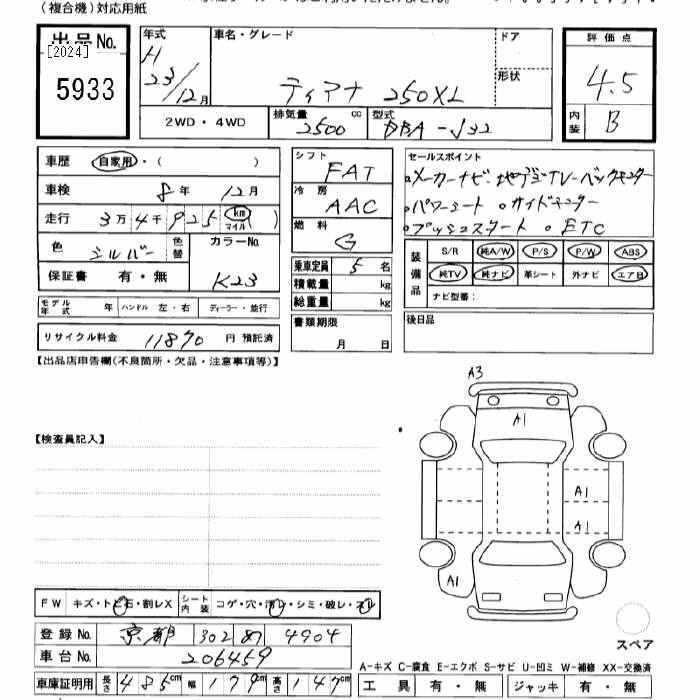 （複合機）対応用紙
出品No.
[2024]
5933
年式
H
23/12月
車名・グレード
ティアナ 250XL
ドア
形状
評価点
4.5
内装
B
2WD・4WD
排気量
2500cc
型式
DBA-J32
車歴 自家用・（ ）
車検 8年 12月
走行 3万4千925 (km マイル)
色 シルバー 色替
カラーNo.
K23
保証書 有・無
モデル年式 年 ハンドル 左・右 ディーラー・並行
リサイクル料金 11870 円 預託済
シフト
FAT
冷房
AAC
燃料
G
乗車定員 5名
積載量 kg
総重量 kg
書類期限
月 日
セールスポイント
○メーカーナビ・地デジTV・バックモニター
○パワーシート ○サイドモニター
○プッシュスタート ○ETC
装備品
S/R 純A/W P/S P/W ABS
純TV 純ナビ 革シート 外ナビ エアB
ナビ型番：
後日品
【出品店申告欄(不良箇所・欠品・注意事項等)】
【検査員記入】
A3
A1
A1
A1
A1
スペア
FW キズ・トビ石・割レX シート内装 コゲ・穴・汚レ・シミ・破レ・スレ
登録No. 京都 302 4904
車台No. 206459
車庫証明用 長さ 485cm 幅 179cm 高さ 147cm
A-キズ C-腐食 E-エクボ S-サビ U-凹ミ W-補修 XX-交換済
工具 有・無 ジャッキ 有・無